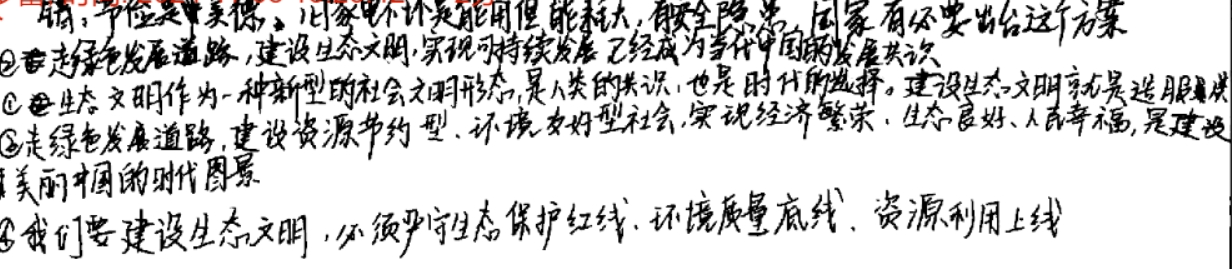 节俭是中华美德。旧家电不计是能用但能耗大,有安全隐患,国家有必要出台这个方案
②走绿色发展道路,建设生态文明,实现可持续发展已经成为当代中国的发展共识
①生态文明作为一种新型的社会文明形态,是人类的共识,也是时代的选择。建设生态文明就是造服
③走绿色发展道路,建设资源节约型、环境友好型社会,实现经济繁荣、生态良好、人民幸福,是建设
美丽中国的时代图景
④我们要建设生态文明,必须严守生态保护红线、环境质量底线、资源利用上线